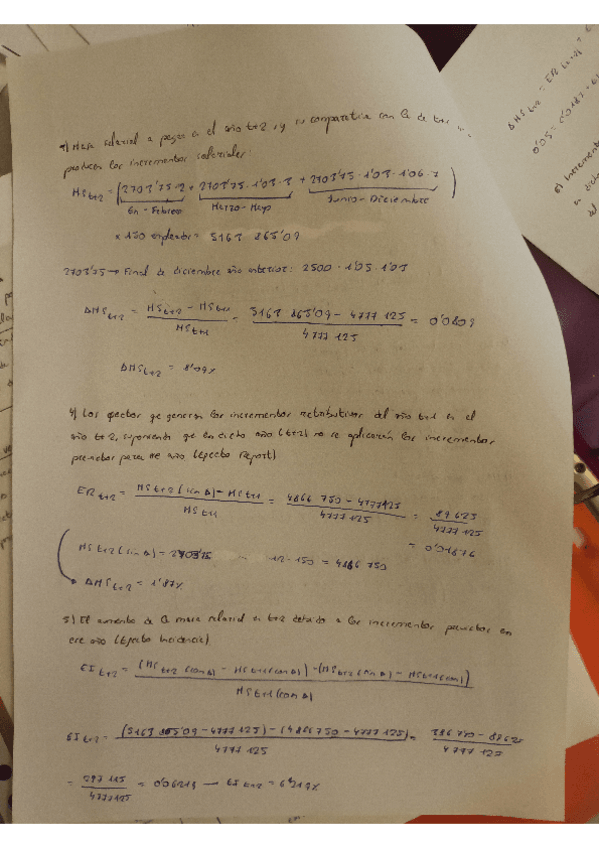 3) Masa salarial a pagar en el año t+2, y su comparativa con la de t+1
producen los incrementos salariales:
HS t+2 = (2703'75 · 2 + 2703'75 · 1'03 · 3 + 2703'75 · 1'03 · 1'06 · 7)
En - Febrero Marzo - Mayo Junio - Diciembre
x 150 empleados = 5163 865'09
2703'75 → Final de diciembre año anterior: 2500 · 1'05 · 1'03
ΔHS t+2 = HS t+2 - HS t+1 / HS t+1 = 5163 865'09 - 4777 125 / 4777 125 = 0'0809
ΔHS t+2 = 8'09%
4) Los efectos que generan los incrementos retributivos del año t+1 en el
año t+2, suponiendo que en dicho año (t+2) no se aplicarán los incrementos
previstos para ese año (Efecto Report)
ER t+2 = HS t+2 (sin Δ) - HS t+1 / HS t+1 = 4866 750 - 4777125 / 4777 125 = 89 625 / 4777 125
= 0'01876
HS t+2 (sin Δ) = 2703'75 · 12 · 150 = 4866 750
ΔHS t+2 = 1'87%
5) El aumento de la masa salarial en t+2 debido a los incrementos previstos en
ese año (Efecto Incidencia)
EI t+2 = (HS t+2 (con Δ) - HS t+1 (con Δ)) - (HS t+2 (sin Δ) - HS t+1 (con Δ)) / HS t+1 (con Δ)
EI t+2 = (5163 865'09 - 4777 125) - (4866 750 - 4777 125) / 4777 125 = 386 740 - 89625 / 4777 125
= 297 115 / 4777125 = 0'06219 — EI t+2 = 6'219%
ΔHS t+2 = ER t+2 +
0'05 = 0'0187 +
El incremento